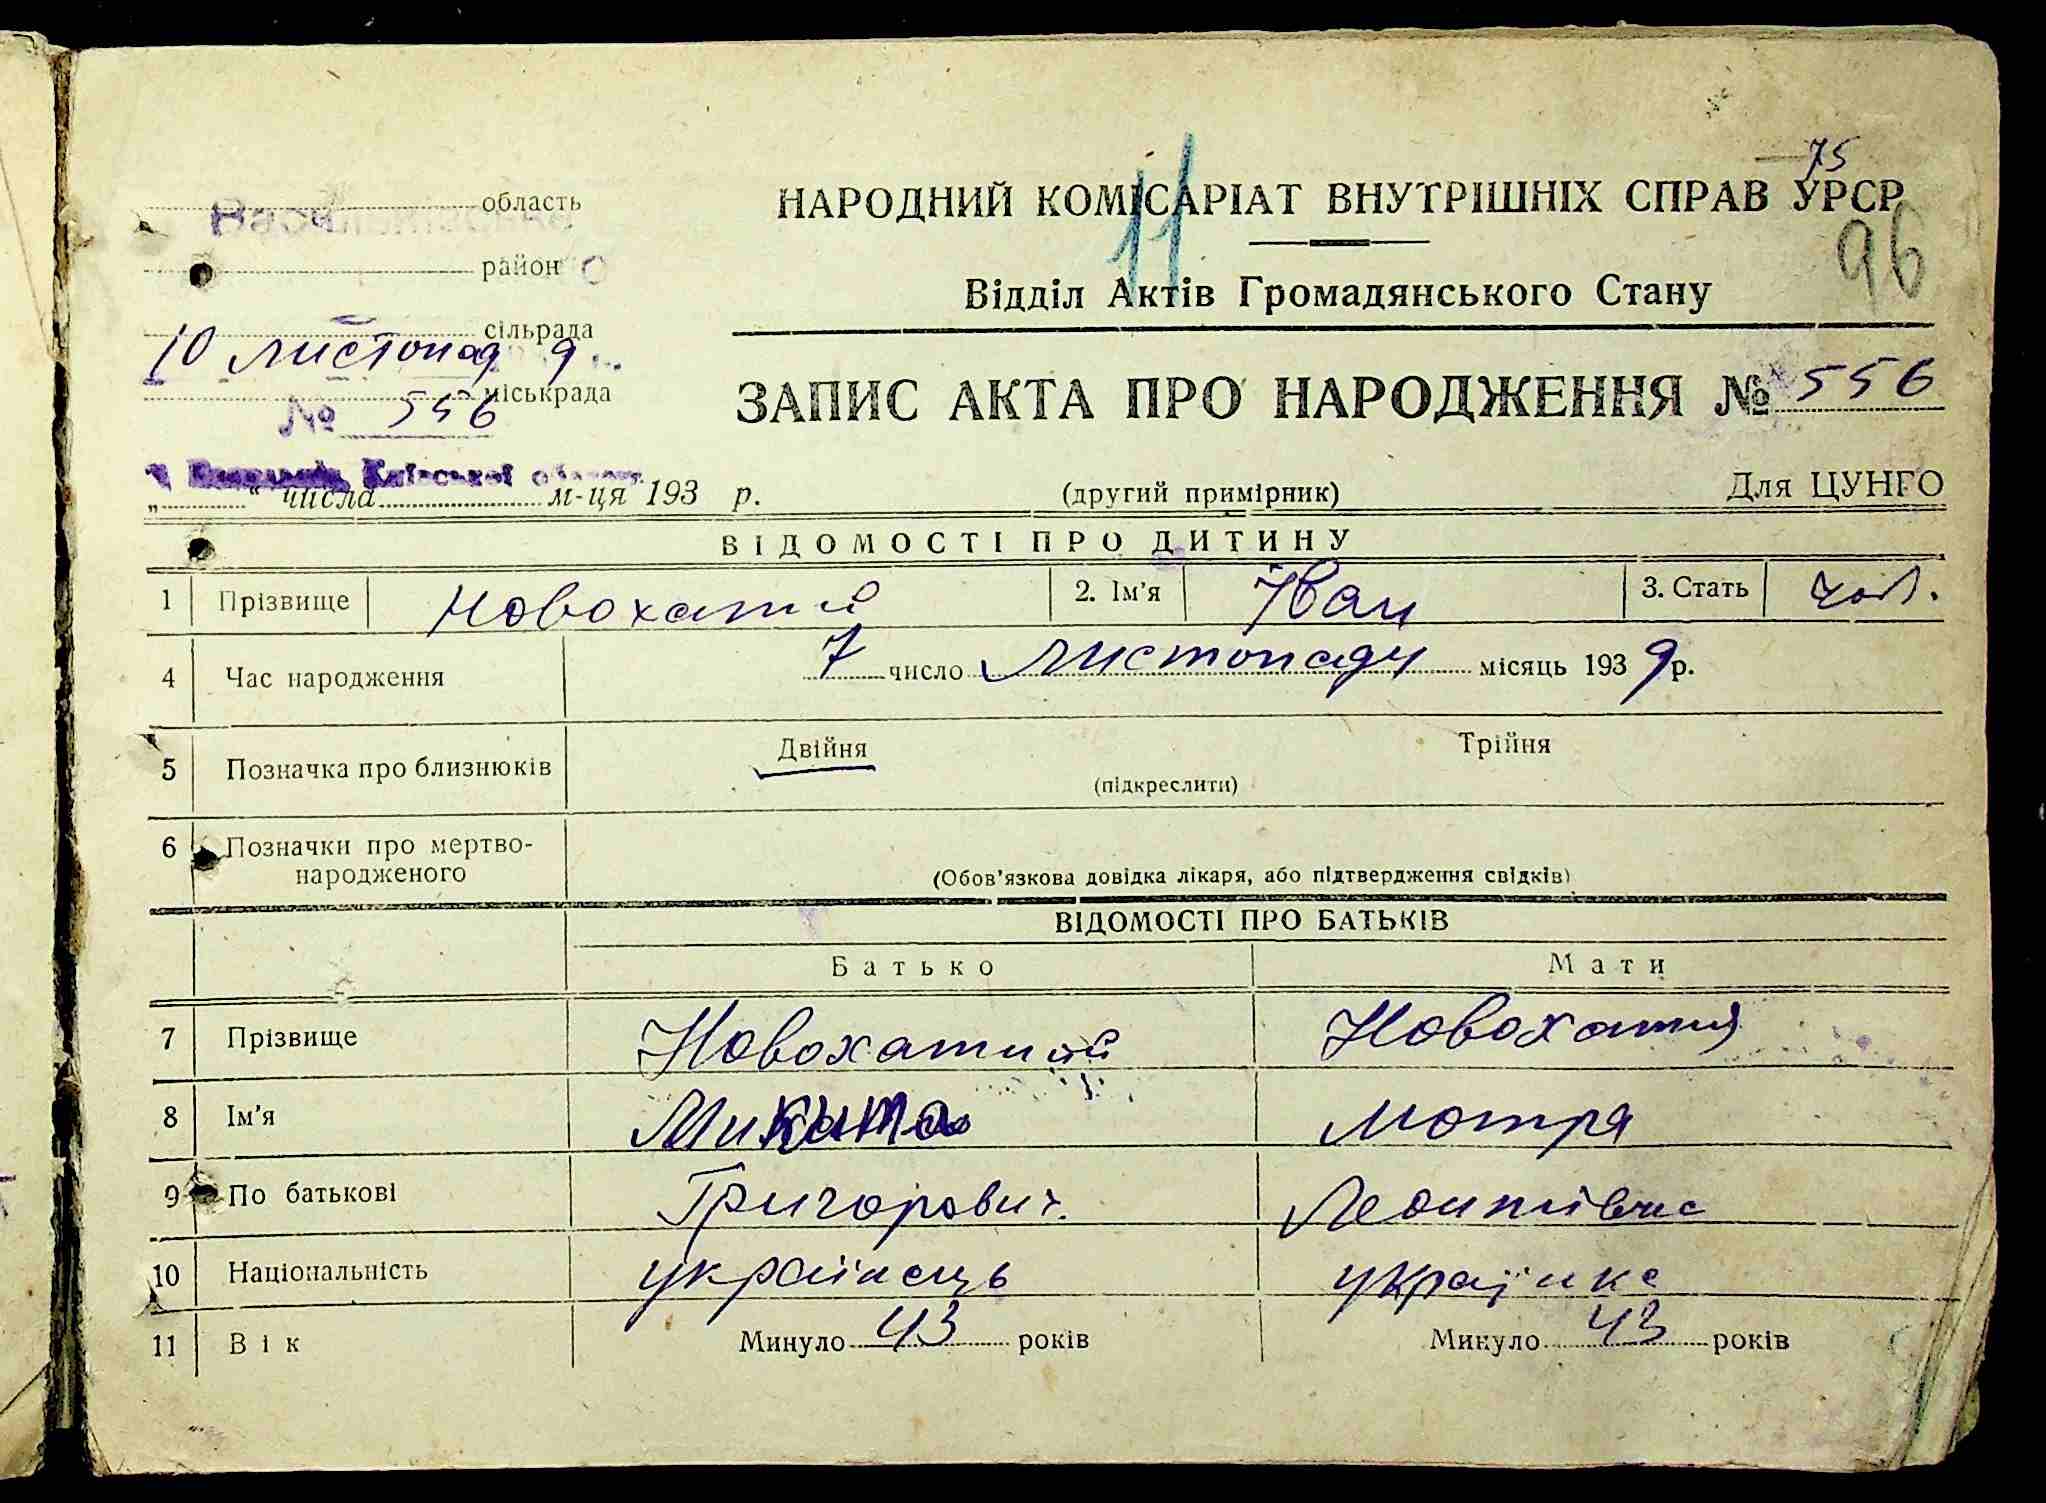 75
НАРОДНИЙ КОМІСАРІАТ ВНУТРІШНІХ СПРАВ УРСР
11
96
Відділ Актів Громадянського Стану
область
район
сільрада
10 листопад 9
міськрада
№ 556
ЗАПИС АКТА ПРО НАРОДЖЕННЯ № 556
Київської
„ “ числа м-ця 193 р.
(другий примірник)
Для ЦУНГО
ВІДОМОСТІ ПРО ДИТИНУ
1 Прізвище Новохатий 2. Ім'я Іван 3. Стать чол.
4 Час народження 7 число Листопаду місяць 1939 р.
5 Позначка про близнюків Двійня Трійня
(підкреслити)
6 Позначки про мертво-
народженого
(Обов'язкова довідка лікаря, або підтвердження свідків)
ВІДОМОСТІ ПРО БАТЬКІВ
Батько Мати
7 Прізвище Новохатий Новохатня
8 Ім'я Микита Мотря
9 По батькові Григорович. Леонтівна
10 Національність українець українка
11 Вік Минуло 43 років Минуло 43 років